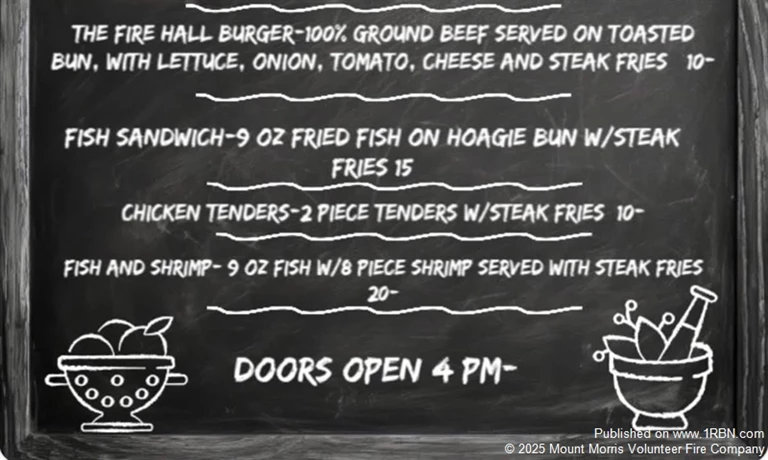 THE FIRE HALL BURGER-100% GROUND BEEF SERVED ON TOASTED
BUN, WITH LETTUCE, ONION, TOMATO, CHEESE AND STEAK FRIES 10-
FISH SANDWICH-9 OZ FRIED FISH ON HOAGIE BUN W/STEAK
FRIES 15
CHICKEN TENDERS-2 PIECE TENDERS W/STEAK FRIES 10-
FISH AND SHRIMP- 9 OZ FISH W/8 PIECE SHRIMP SERVED WITH STEAK FRIES
20-
DOORS OPEN 4 PM-
Published on www.1RBN.com
© 2025 Mount Morris Volunteer Fire Company